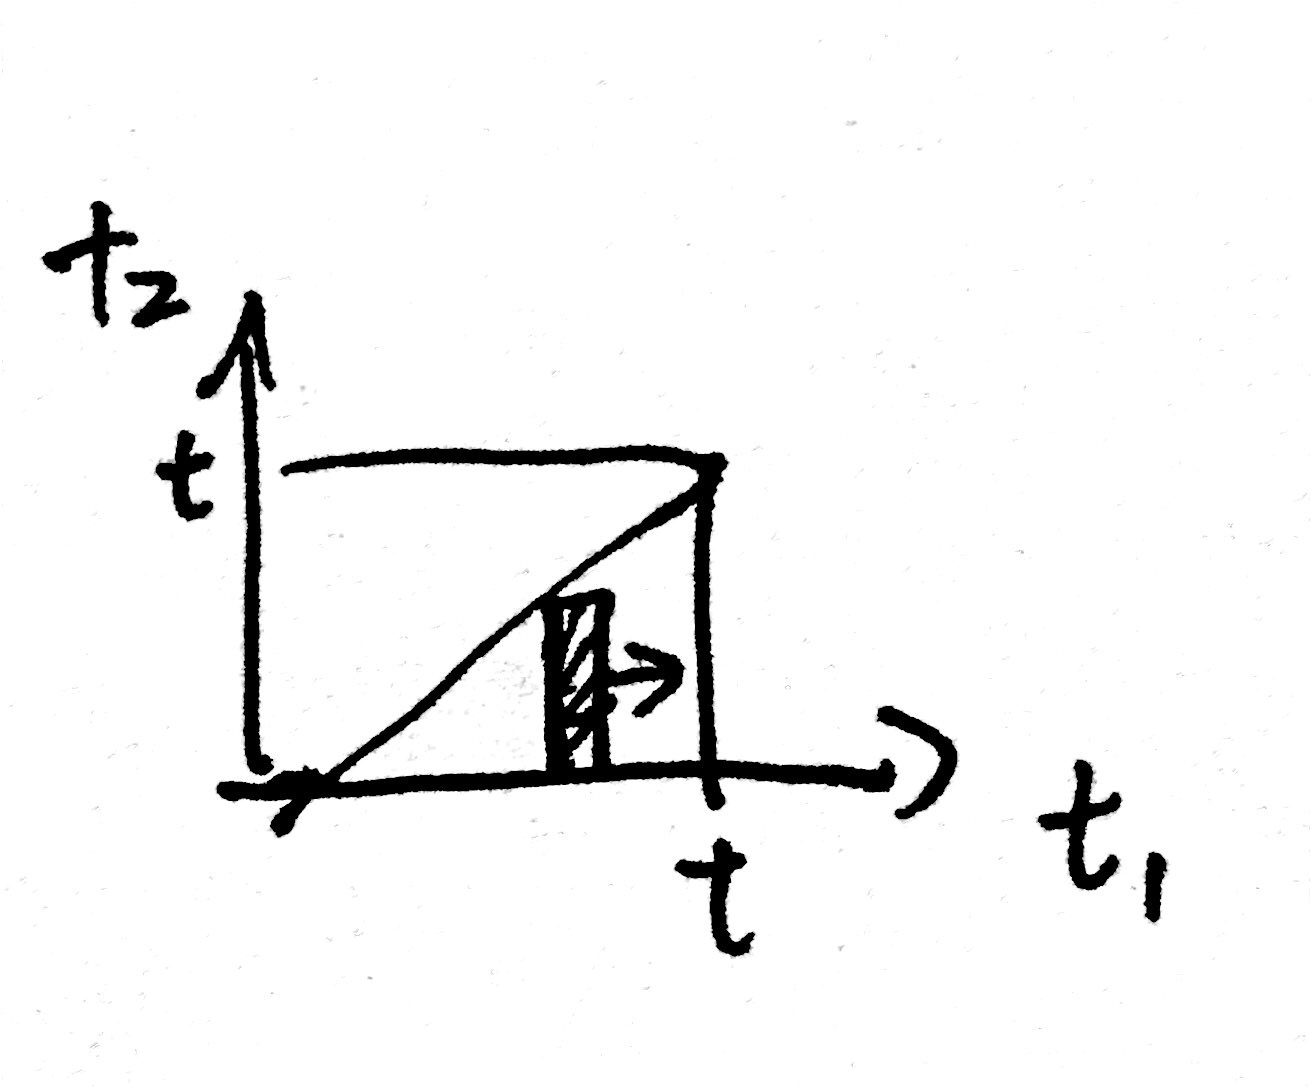 t₂
t
t
t₁